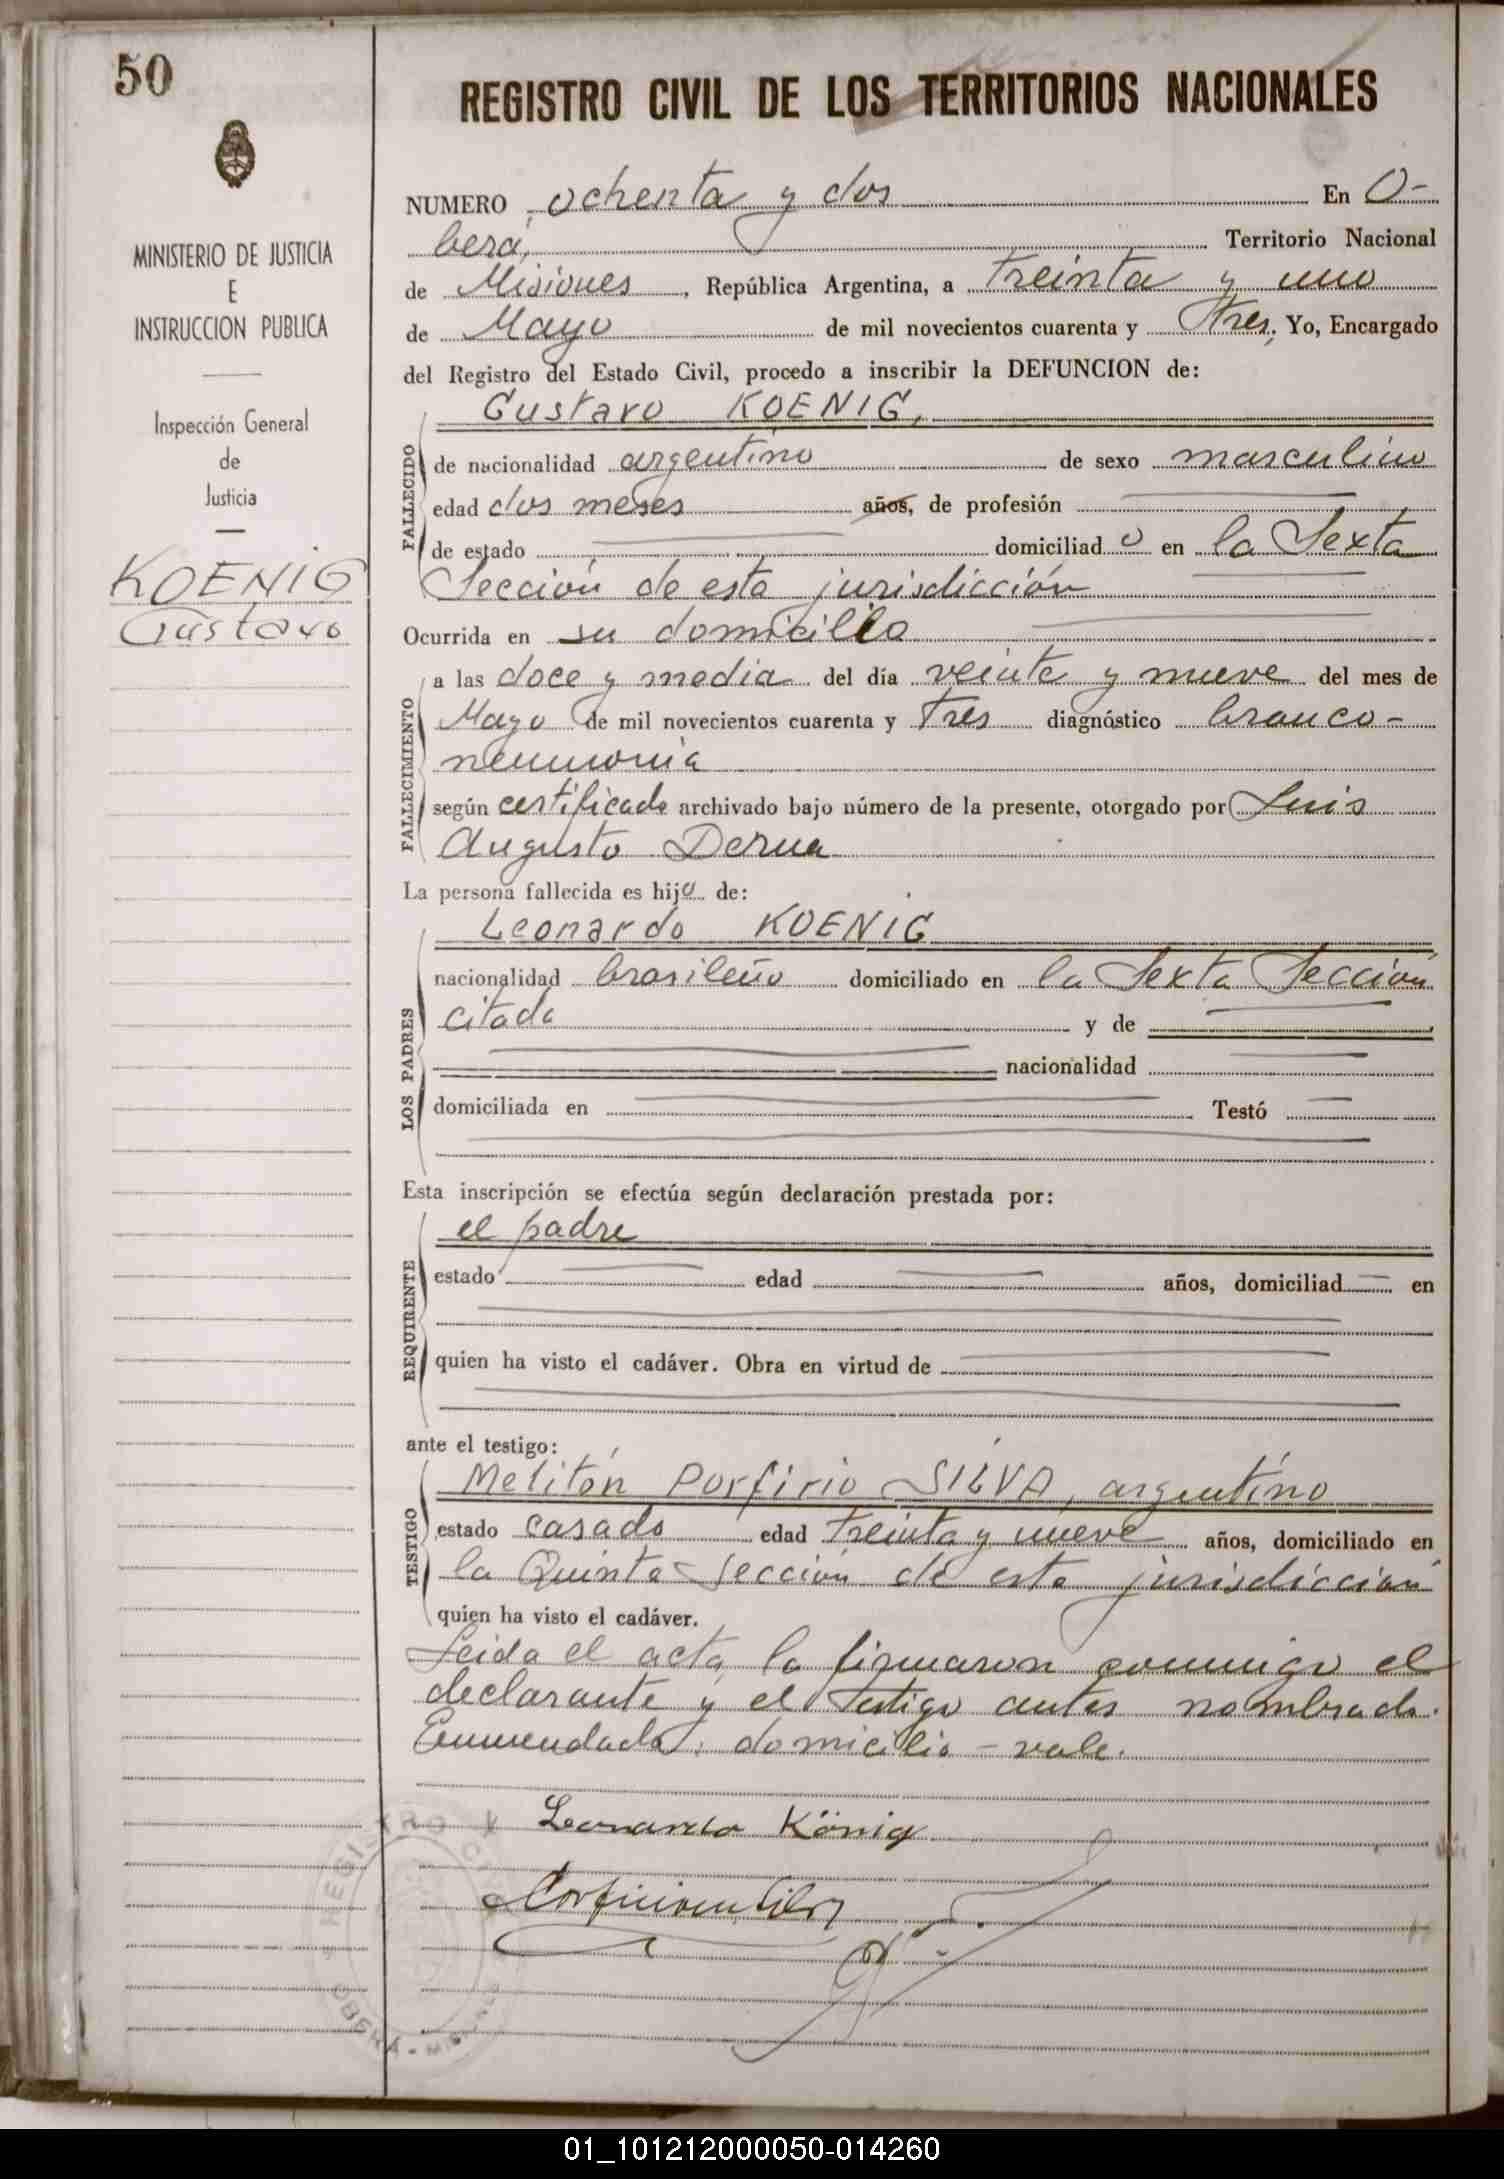 50
REGISTRO CIVIL DE LOS TERRITORIOS NACIONALES
MINISTERIO DE JUSTICIA
E
INSTRUCCION PUBLICA
Inspección General
de
Justicia
KOENIG
Gustavo
NUMERO ochenta y dos En O-
berá, Territorio Nacional
de Misiones, República Argentina, a treinta y uno
de Mayo de mil novecientos cuarenta y tres. Yo, Encargado
del Registro del Estado Civil, procedo a inscribir la DEFUNCION de:
FALLECIDO
Gustavo KOENIG,
de nacionalidad argentino de sexo masculino
edad dos meses años, de profesión
de estado domiciliado en la Sexta
Sección de esta jurisdicción
Ocurrida en su domicilio
FALLECIMIENTO
a las doce y media del día veinte y nueve del mes de
Mayo de mil novecientos cuarenta y tres diagnóstico bronco-
neumonia
según certificado archivado bajo número de la presente, otorgado por Luis
Augusto Derna
La persona fallecida es hijo de:
LOS PADRES
Leonardo KOENIG
nacionalidad brasileño domiciliado en la Sexta Sección
citada y de
nacionalidad
domiciliada en Testó
Esta inscripción se efectúa según declaración prestada por:
REQUIRENTE
el padre
estado edad años, domiciliad en
quien ha visto el cadáver. Obra en virtud de
ante el testigo:
TESTIGO
Melitón Porfirio SILVA, argentino
estado casado edad treinta y nueve años, domiciliado en
la Quinta Sección de esta jurisdicción
quien ha visto el cadáver.
Leida el acta, la firmaron conmigo el
declarante y el testigo antes nombrado.
Enmendado: domicilio - vale.
Leonardo König
REGISTRO CIVIL
OBERA - MISIONES
01_101212000050-014260